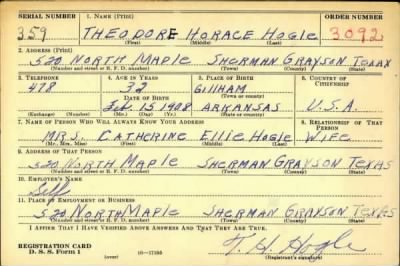 SERIAL NUMBER 1. NAME (Print) ORDER NUMBER
359 THEODORE HORACE HOGLE 3092
(First) (Middle) (Last)
2. ADDRESS (Print)
520 NORTH MAPLE SHERMAN GRAYSON TEXAX
(Number and street or R. F. D. number) (Town) (County) (State)
3. TELEPHONE 4. AGE IN YEARS 5. PLACE OF BIRTH 6. COUNTRY OF CITIZENSHIP
478 32 GILLHAM
DATE OF BIRTH (Town or county)
Feb 15 1908 ARKANSAS U.S.A.
(Exchange) (Number) (Mo.) (Day) (Yr.) (State or country)
7. NAME OF PERSON WHO WILL ALWAYS KNOW YOUR ADDRESS 8. RELATIONSHIP OF THAT PERSON
MRS. CATHERINE ELLIE HOGLE WIFE
(Mr., Mrs., Miss) (First) (Middle) (Last)
9. ADDRESS OF THAT PERSON
520 NORTH MAPLE SHERMAN GRAYSON TEXAS
(Number and street or R. F. D. number) (Town) (County) (State)
10. EMPLOYER'S NAME
Self
11. PLACE OF EMPLOYMENT OR BUSINESS
520 NORTH MAPLE SHERMAN GRAYSON TEXAS
(Number and street or R. F. D. number) (Town) (County) (State)
I AFFIRM THAT I HAVE VERIFIED ABOVE ANSWERS AND THAT THEY ARE TRUE.
T. H. Hogle
REGISTRATION CARD
D. S. S. Form 1 (over) (Registrant's signature)